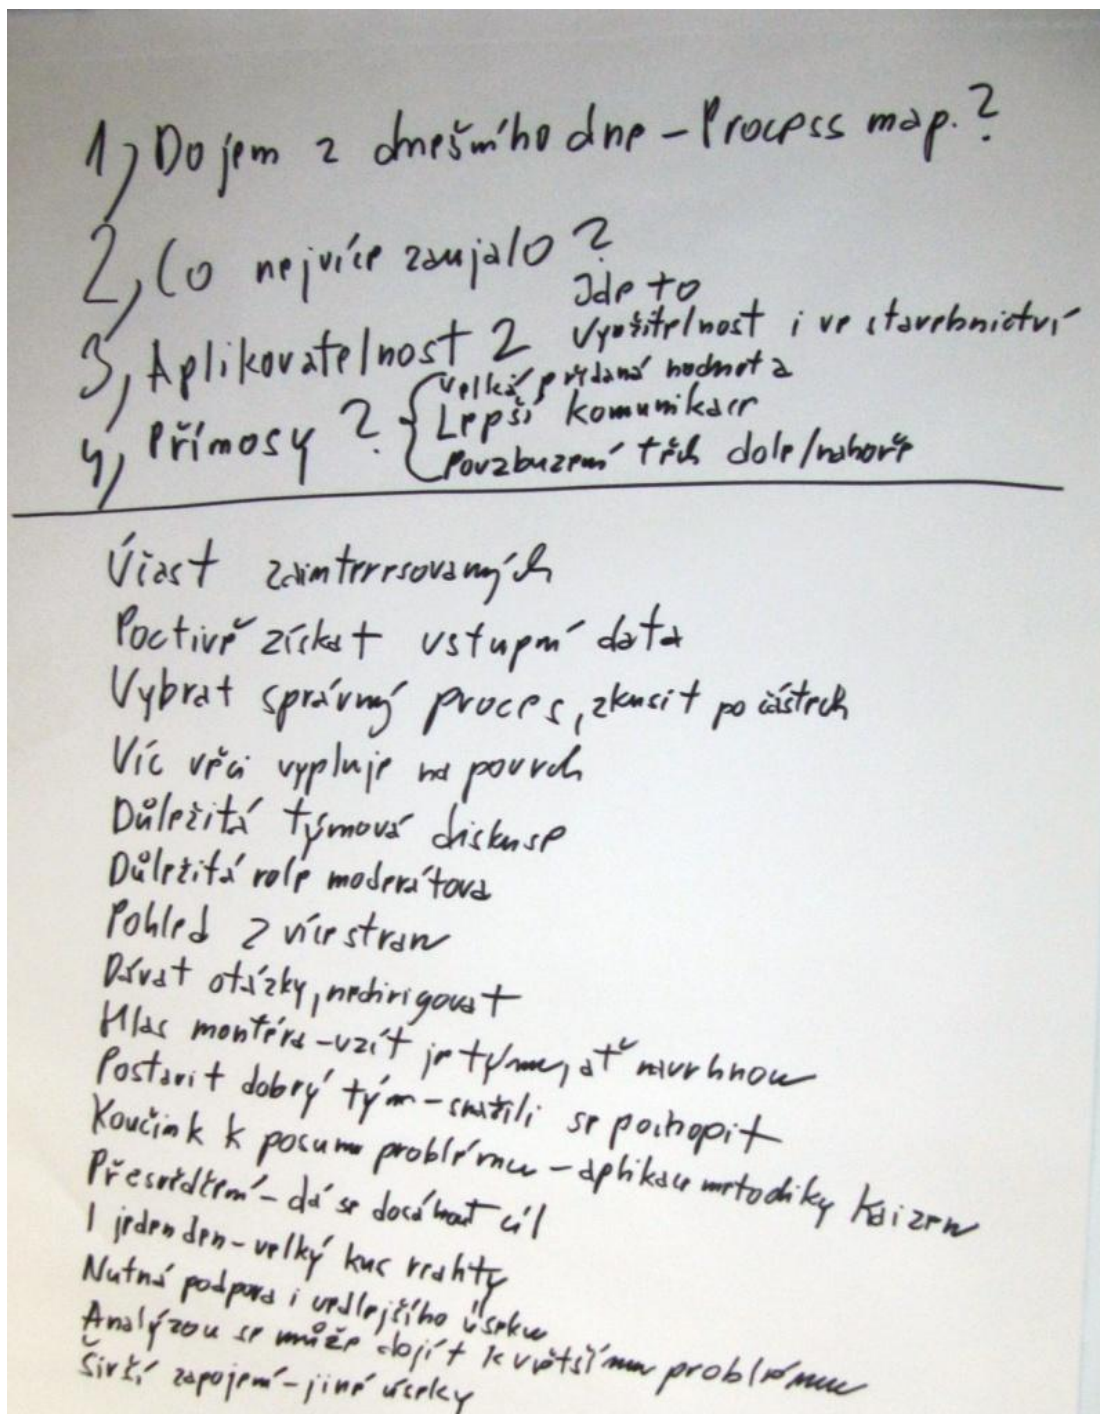 1, Dojem z dnešního dne - Process map.?
2, Co nejvíce zaujalo?
3, Aplikovatelnost?
Jde to
Využitelnost i ve stavebnictví
4, Přínosy?
Velká přidaná hodnota
Lepší komunikace
Povzbuzení těch dole/nahoře
Účast zainteresovaných
Poctivě získat vstupní data
Vybrat správný proces, zkusit po částech
Víc věcí vypluje na povrch
Důležitá týmová diskuse
Důležitá role moderátora
Pohled z více stran
Dávat otázky, nedirigovat
Hlas montéra - vzít je týmu, ať navrhnou
Postavit dobrý tým - snažili se pochopit
Koučink k posunu problému - aplikace metodiky Kaizen
Přesvědčení - dá se dosáhnout cíl
I jeden den - velký kus reality
Nutná podpora i vedlejšího úseku
Analýzou se může dojít k většímu problému
Širší zapojení - jiné úseky